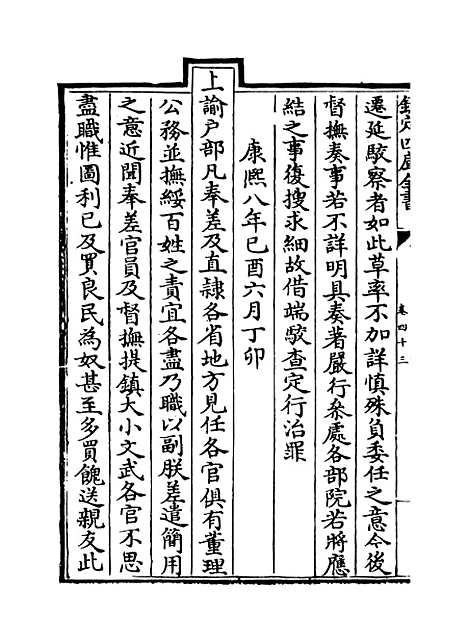 欽定四庫全書
卷四十三
遷延駮察者如此草率不加詳慎殊負委任之意今後
督撫奏事若不詳明具奏著嚴行叅處各部院若將應
結之事復搜求細故借端駮查定行治罪
康熙八年己酉六月丁卯
上諭户部凡奉差及直隷各省地方見任各官俱有董理
公務並撫綏百姓之責宜各盡乃職以副朕差遣簡用
之意近聞奉差官員及督撫提鎮大小文武各官不思
盡職惟圖利己及買良民為奴甚至多買餽送親友此